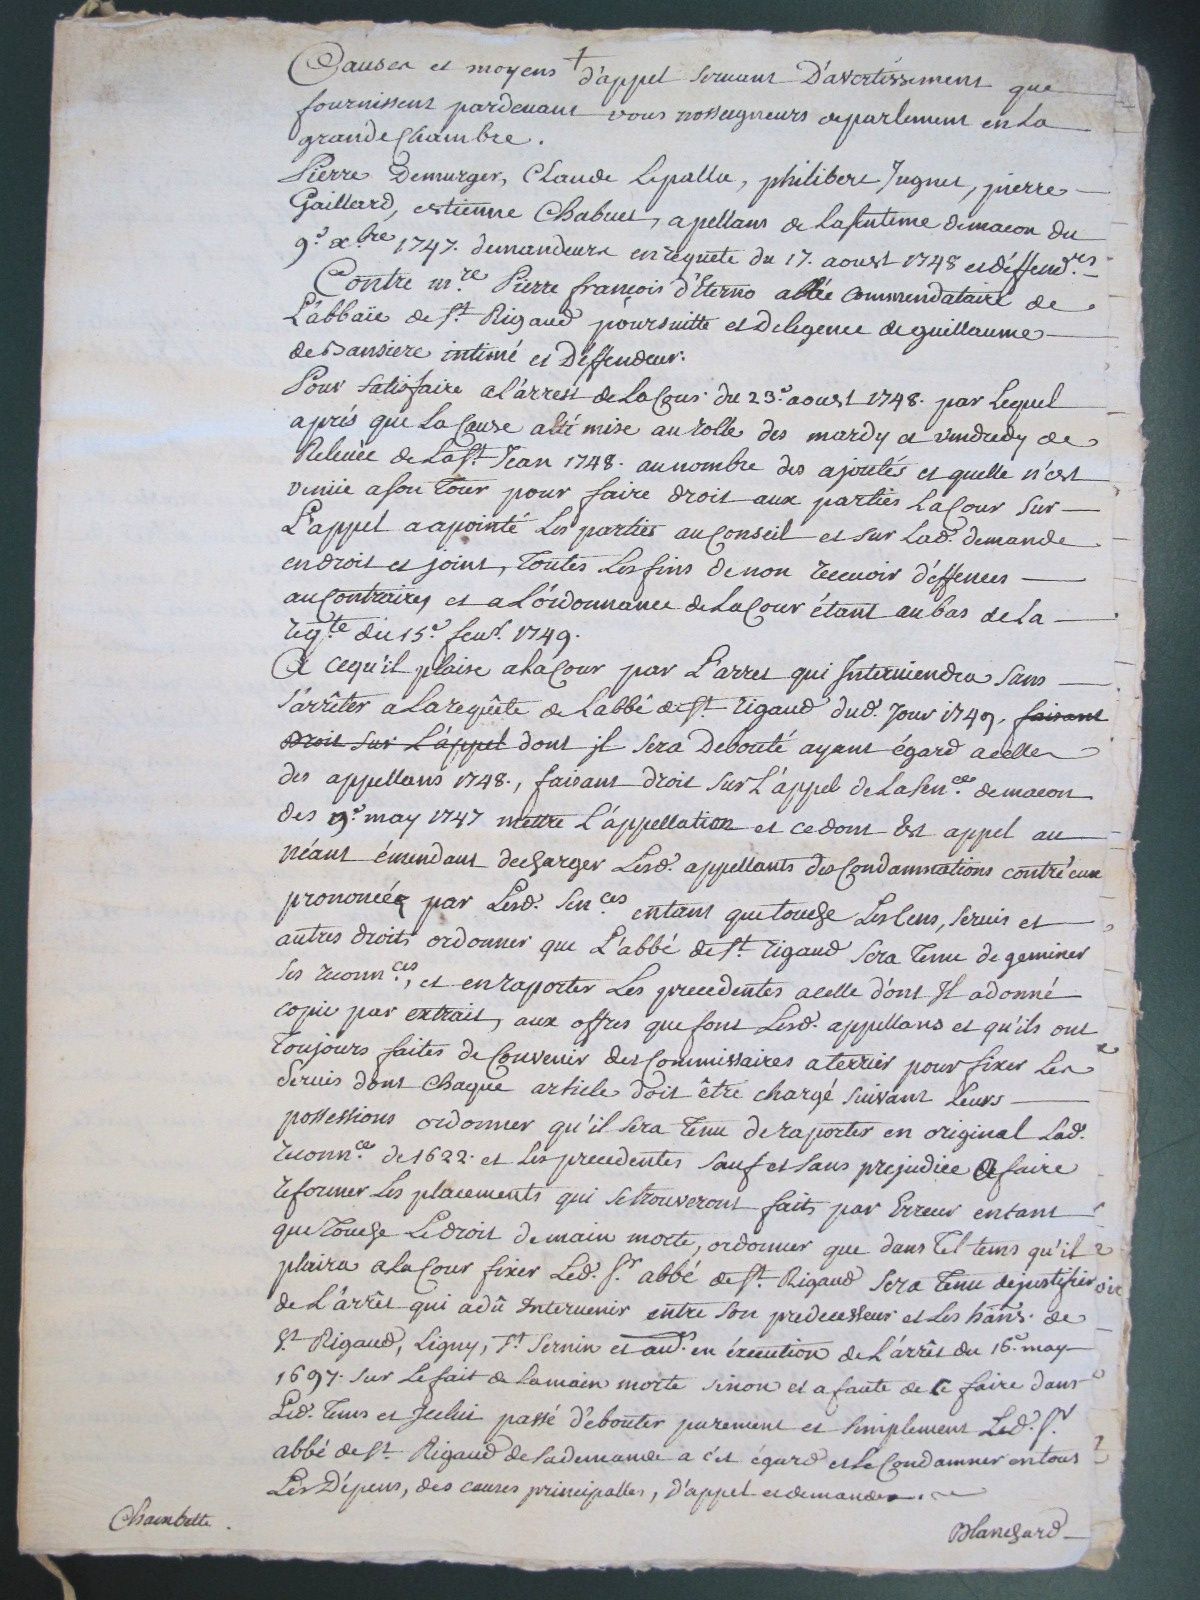 Causes et moyens d'appel servant D'avertissement que
fournissent pardevant vous nosseigneurs deparlement en la
grande Chambre.
Pierre Demurger, Claude Lepallu, philibert Jugnet, pierre
Gaillard, estienne Chabuet, apellans de la sentence demacon du
9e xbre 1747. demandeurs en requete du 17. aoust 1748 et déffendrs
Contre mre Pierre françois d'Eterno abbé commendataire de
L'abbaïe de st Rigaud poursuitte et Deligence de guillaume
de intimé et Déffendeur.
Pour satisfaire a L'arrest de la Cour du 23e aoust 1748. par Lequel
aprés que la Cause a été mise au rolle des mardy et vendredy de
Relevée de la st Jean 1748. au nombre des ajoutés et quelle n'est
venüe a son Tour pour faire droit aux parties La Cour sur
L'appel a apointé Les parties au Conseil et sur Lad. demande
en droit et joint, Toutes Les fins de non recevoir déffences
au Contraires et a L'ordonnance de la Cour étant au bas de la
reqte du 15e fevr. 1749.
A cequ'il plaise a la Cour par L'arret qui Interviendra sans
s'arrêter a la requête de Labbé de st rigaud dud. Jour 1749, faisant
droit sur L'appel dont il sera Debouté ayant égard a celle
des appellans 1748., faisant droit sur L'appel de la sence demacon
des 9e may 1747 mettre L'appellation et ce dont Est appel au
néant émendant decharger Lesd. appellants des Condamnations contre eux
prononcées par Lesd. sences entant que touche Les Cens, servis et
autres droits ordonner que L'abbé de st rigaud sera tenu de geminer
ses reconnces, et en raporter Les precedentes a celle dont Il a donné
copie par extrait, aux offres que font Lesd. appellans et qu'ils ont
Toujours faites de Convenir des Commissaires a terrier pour fixer Les
servis dont chaque article doit être chargé suivant Leurs
possessions ordonner qu'il sera tenu de raporter en original Lad.
reconnce de 1622. et Les precedentes sauf et sans prejudice a faire
reformer Les placements qui se trouveront faits par Erreur entant
que touche Le droit de main morte, ordonner que dans tel tems qu'il
plaira a la Cour fixer Led. sr abbé de st. Rigaud sera tenu de justifier
de L'arrêt qui a dû Intervenir entre son predecesseur et Les hans. de
st Rigaud, Ligny, st Sernin et aus. en éxecution de L'arrêt du 16e may
1697. sur Le fait de la main morte sinon et a faute de ce faire dans
Led. tems et Jcelui passé débouter purement et simplement Led. sr.
abbé de st. Rigaud de sa demande a cet égard et Le Condamner en tous
Les Dépens, des causes principalles, d'appel et demandes.
Blanchard